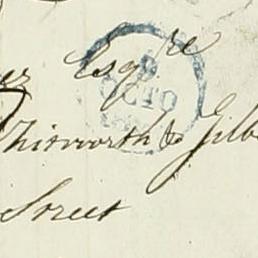 Esqre
OCTO
Whitworth & Gilb
Street